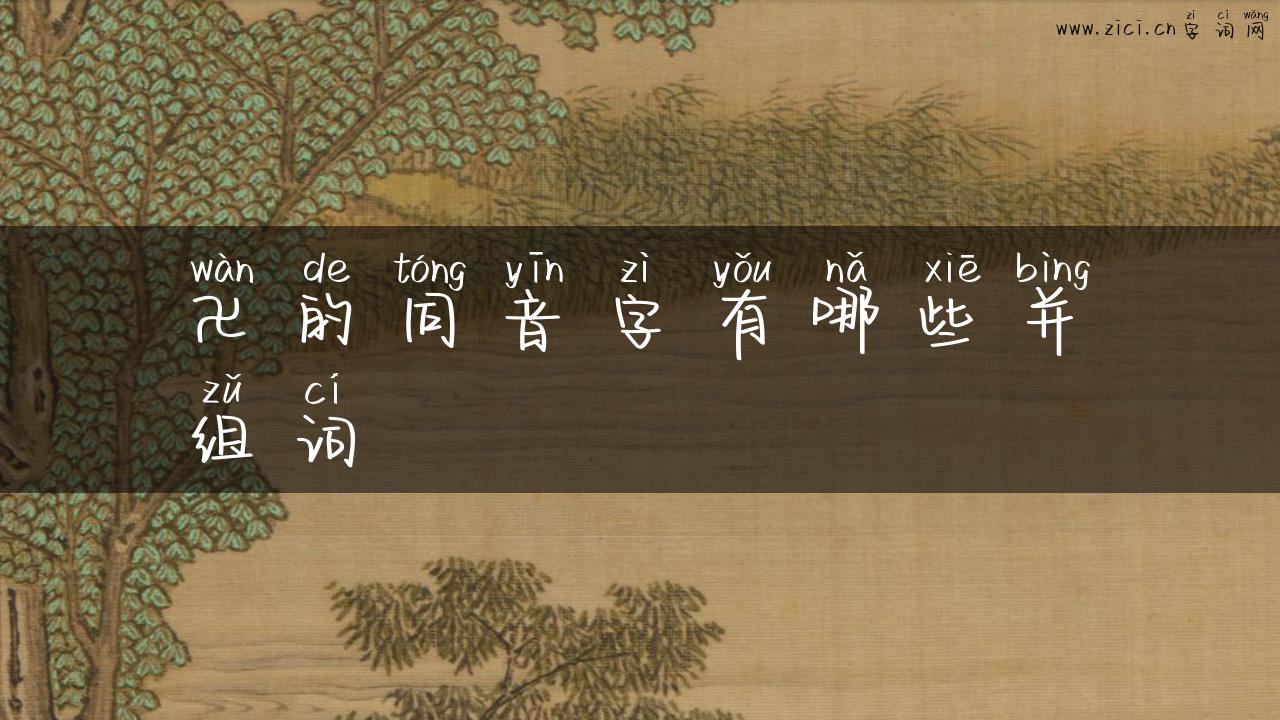 zì cí wǎng
www.zici.cn字词网
wàn de tóng yīn zì yǒu nǎ xiē bìng
卍的同音字有哪些并
zǔ cí
组词